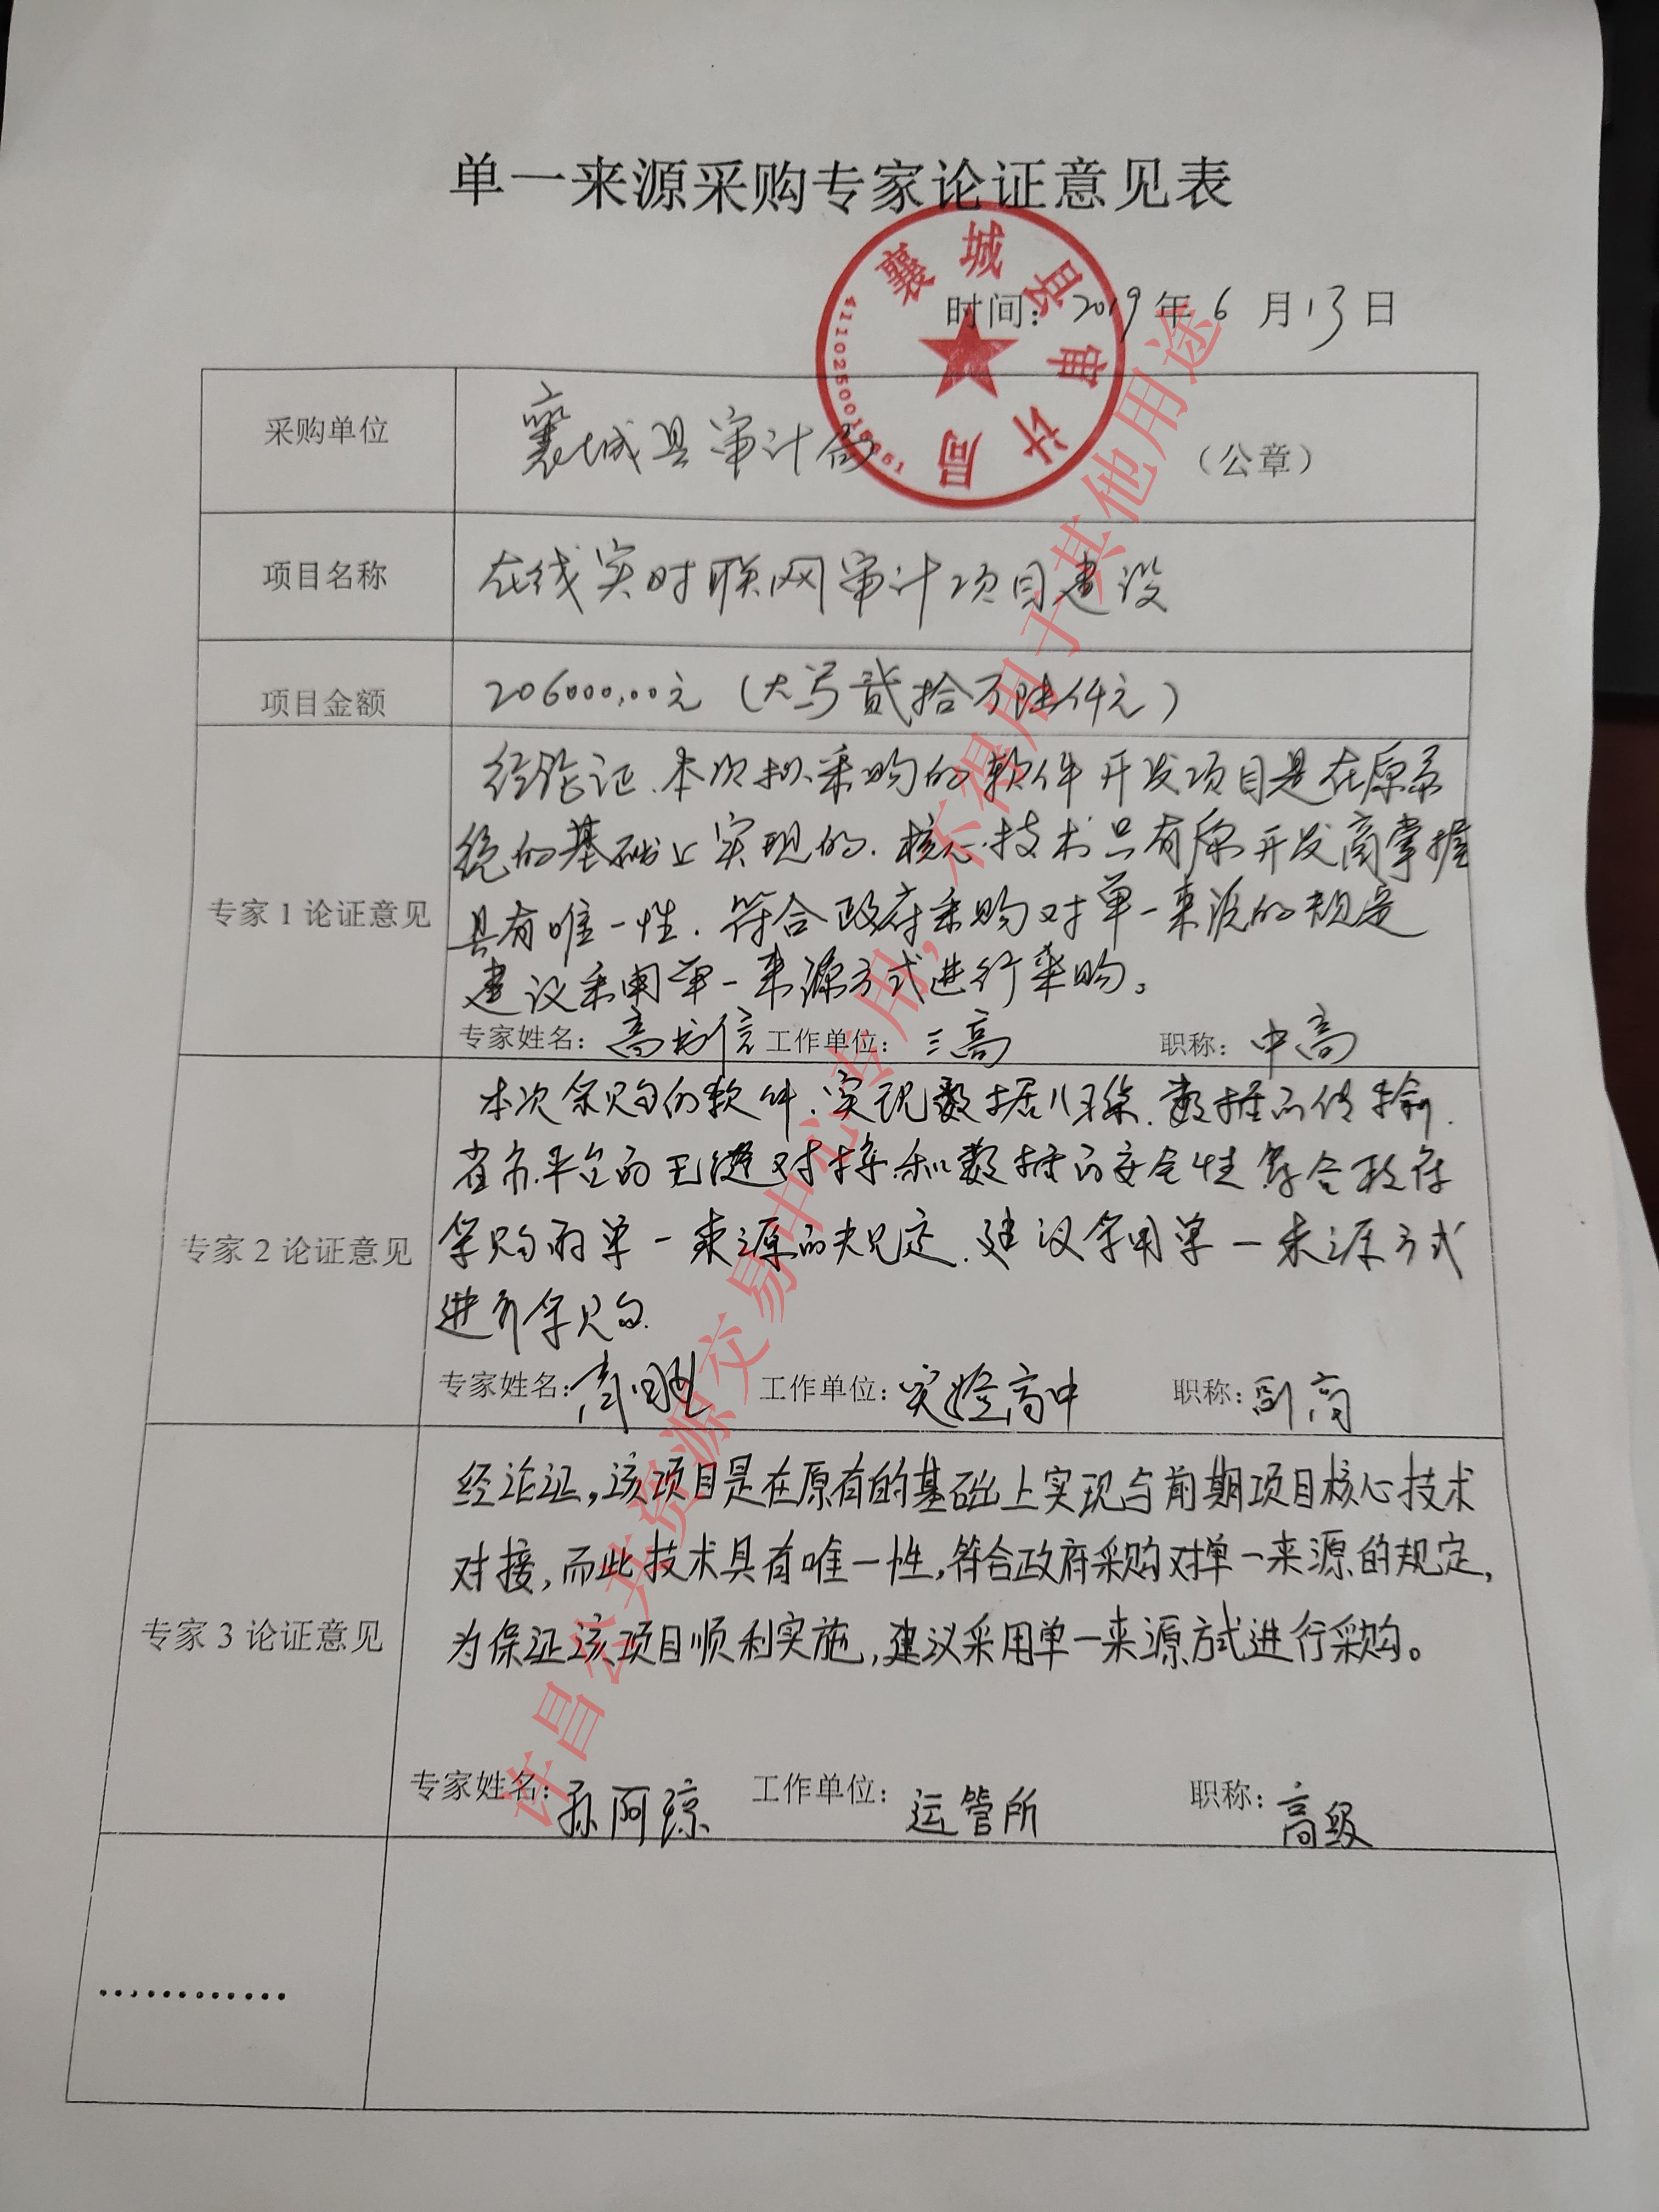 单一来源采购专家论证意见表
时间：2019年6月13日
襄城县审计局
采购单位
襄城县审计局
（公章）
项目名称
在线实时联网审计项目建设
项目金额
206000.00元（大写贰拾万陆仟元）
专家1论证意见
经论证.本次拟采购的软件开发项目是在原系
统的基础上实现的.核心技术只有原开发商掌握
具有唯一性.符合政府采购对单一来源的规定
建议采用单一来源方式进行采购。
专家姓名：高 信 工作单位：三高 职称：中高
专家2论证意见
本次采购的软件.实现数据 .数据的传输.
省市平台的无缝对接和数据的安全性符合政府
采购对单一来源的规定.建议采用单一来源方式
进行采购.
专家姓名： 工作单位：实验高中 职称：副高
专家3论证意见
经论证,该项目是在原有的基础上实现与前期项目核心技术
对接,而此技术具有唯一性,符合政府采购对单一来源的规定,
为保证该项目顺利实施,建议采用单一来源方式进行采购。
专家姓名：孙阿琼 工作单位：运管所 职称：高级
…………
许昌公共资源交易中心专用，不得用于其他用途